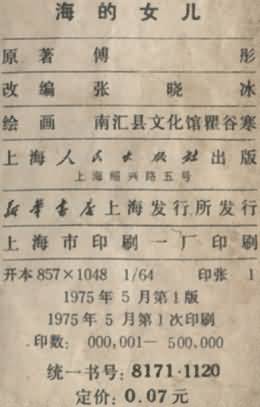 海的女儿
原著 傅彤
改编 张晓冰
绘画 南汇县文化馆瞿谷寒
上海人民出版社出版
上海绍兴路五号
新华书店上海发行所发行
上海市印刷一厂印刷
开本857×1048 1/64 印张 1
1975年5月第1版
1975年5月第1次印刷
印数：000,001—500,000
统一书号：8171·1120
定价：0.07元